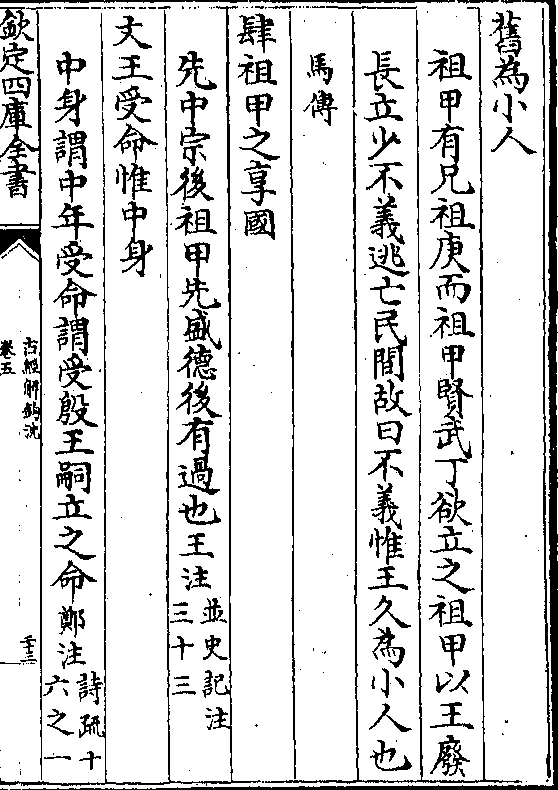 舊為小人
祖甲有兄祖庚而祖甲賢武丁欲立之祖甲以王廢
長立少不義逃亡民間故曰不義惟王久為小人也
馬傳
肆祖甲之享國
先中宗後祖甲先盛德後有過也王注並史記注三十三
文王受命惟中身
中身謂中年受命謂受殷王嗣立之命鄭注詩疏十六之一
欽定四庫全書
古經解鉤沈
卷五